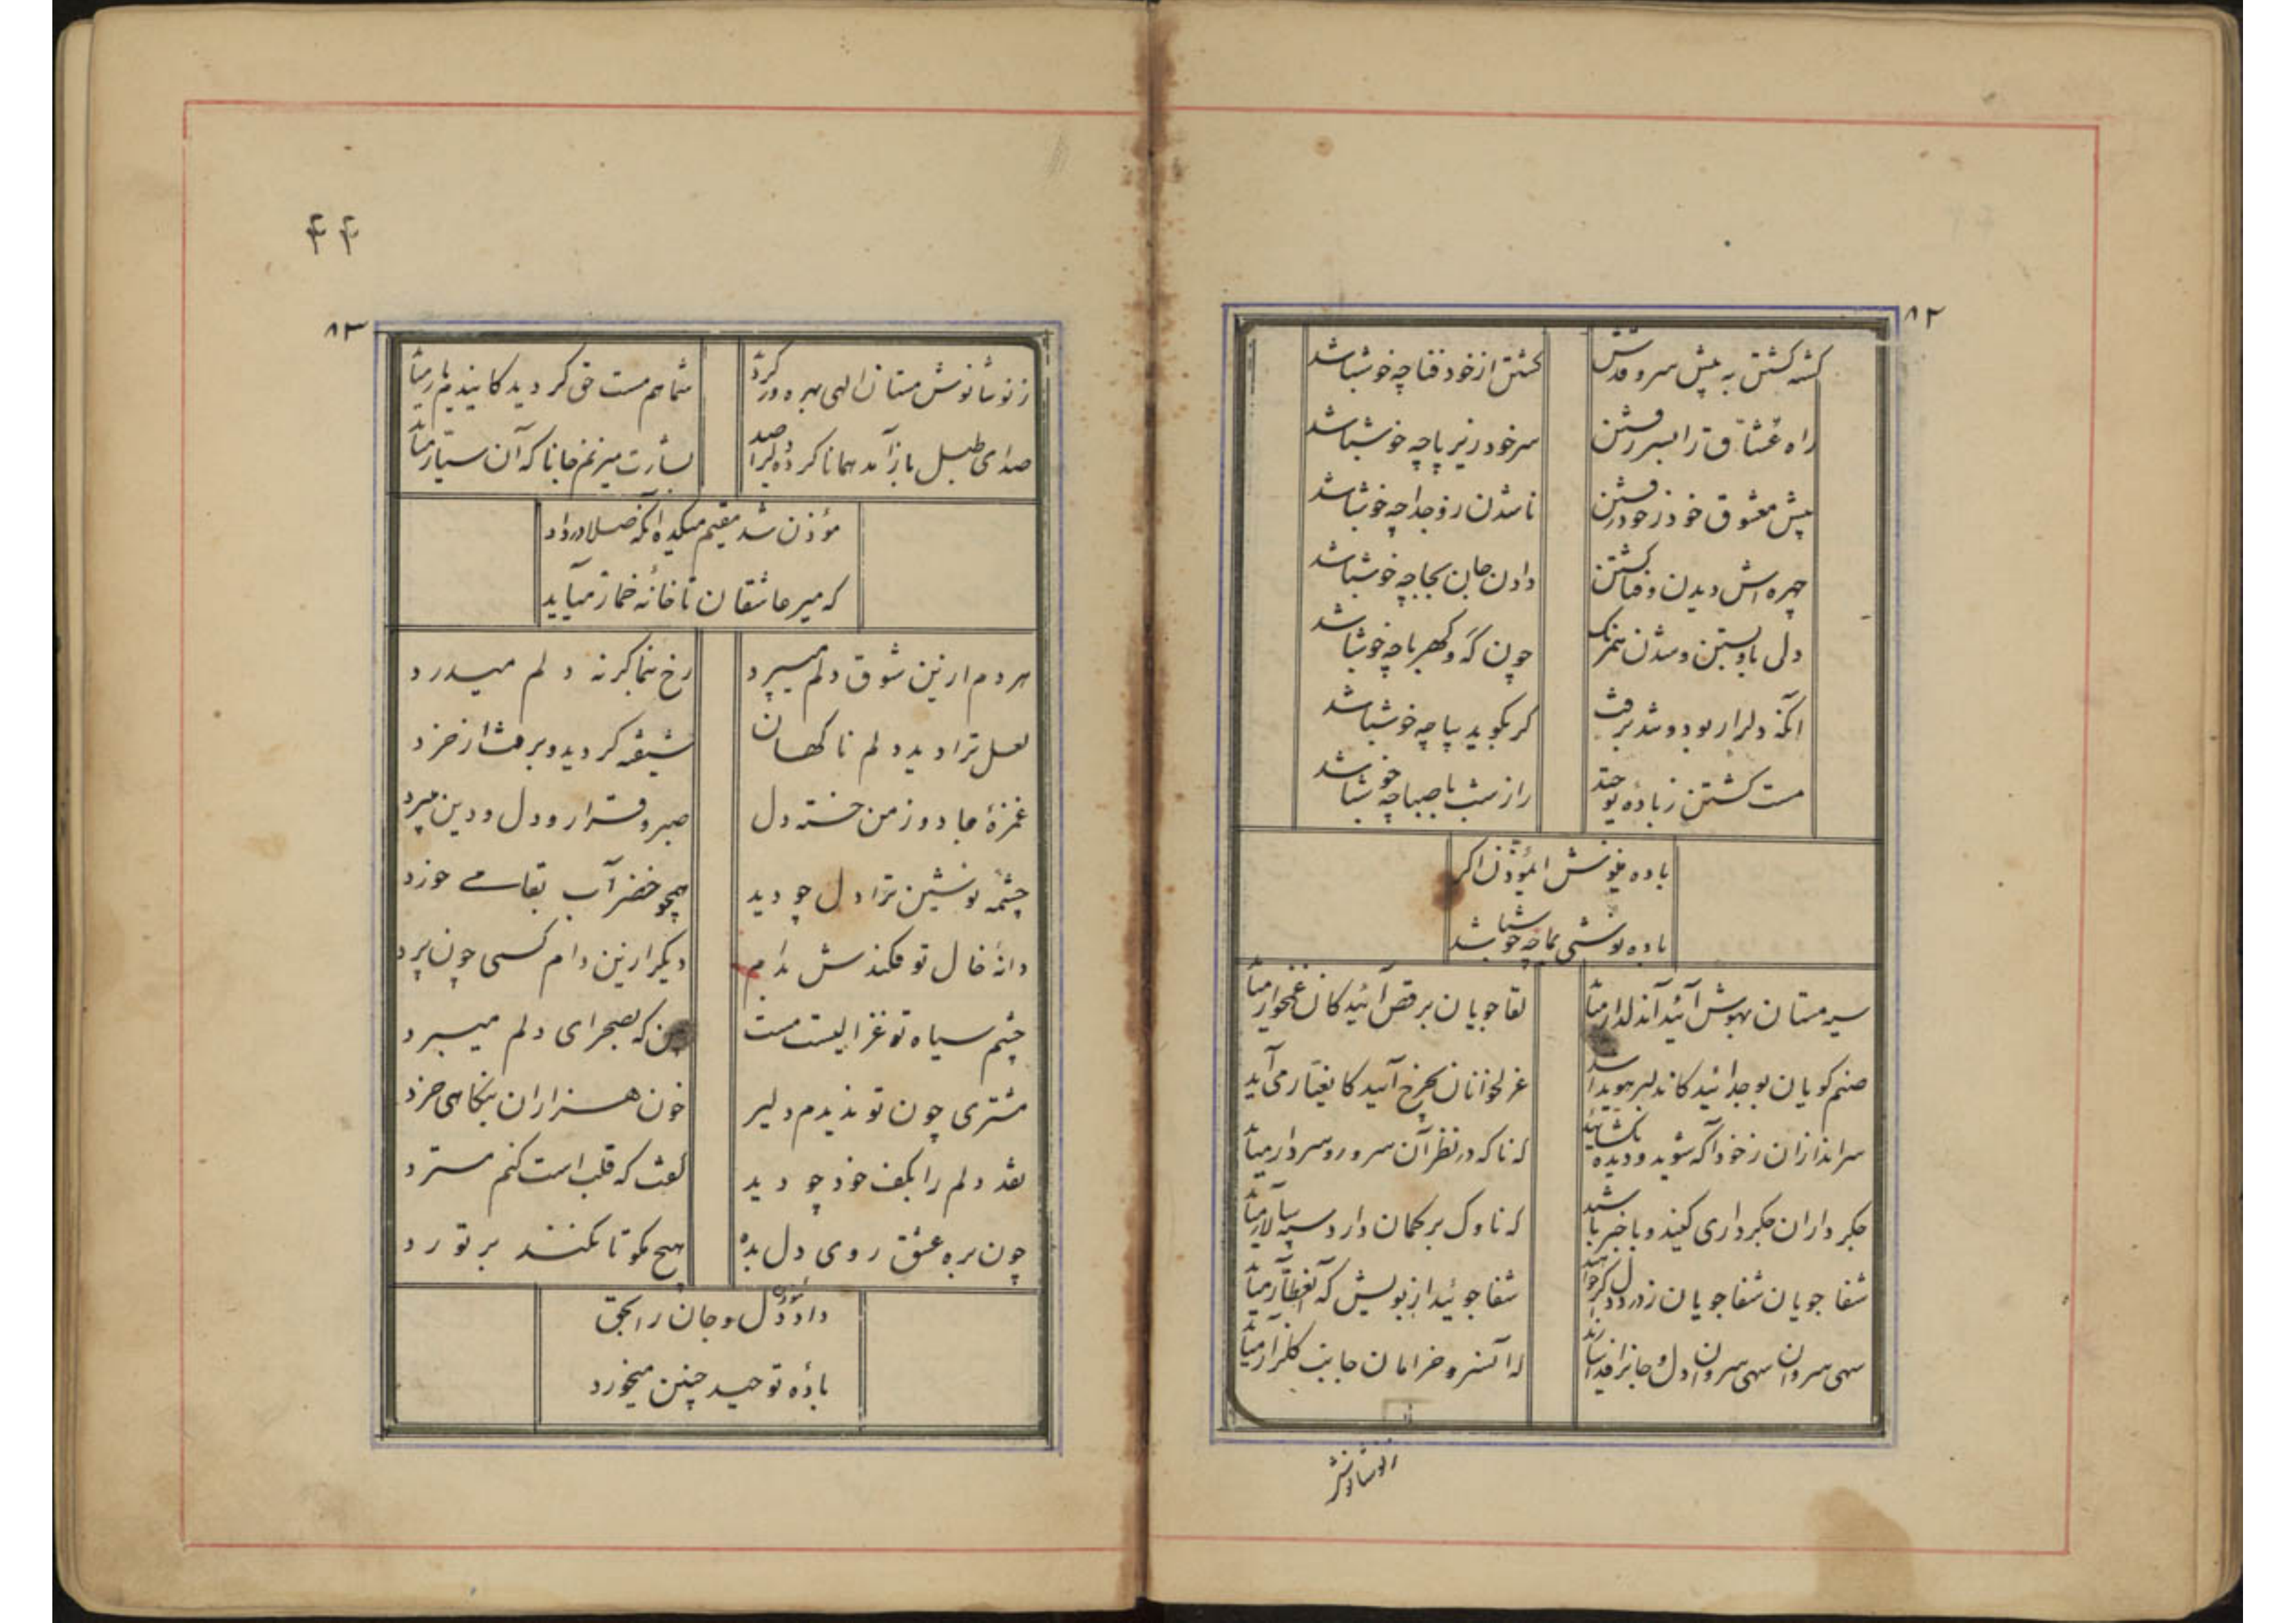 ۸۲
کشته کشتن به پیش سرو قدش
کشتن از خود فنا چه خوش باشد
راه عشاق را بسر رفتن
سر خود زیر پا چه خوش باشد
پیش معشوق خود ز خود رفتن
ناشدن زو جدا چه خوش باشد
چهره‌اش دیدن و فنا کشتن
دادن جان بجا چه خوش باشد
دل باو بستن و شدن همرنک
چون که و کهربا چه خوش باشد
آنکه دل را ربود و شد برفت
کر بکوید بیا چه خوش باشد
مست کشتن ز باده توحید
راز شب با صبا چه خوش باشد
باده مینوش ایمؤذن اکر
باده نوشی بما چه خوش باشد
سیه مستان بهوش آئید آندلدار میآید
لقا جویان برقص آئید کان غمخوار میآید
صنم کویان بوجد ائید کاندلبر هویدا شد
غزلخوانان بچرخ آیید کا یغیار می آید
سراندازان ز خود آکه شوید و دیده بکشائید
که ناکه در نظر آن سرور و سردار میآید
جکر داران جکرداری کنید و با خبر باشید
که ناوک بر کمان دارد سپه سالار میآید
شفا جویان شفا جویان ز درد دل اکر خواهید
شفا جوئید از بویش که آنعطار میآید
سهی سروان سهی سروان دل و جانرا فدا سازید
که آنسرو خرامان جانب کلزار میآید
زنوشانوش
۴۴
۸۳
زنوشانوش مستان الهی بهره ور کردد
شما هم مست حق کردید کایندم یار میآید
صدای طبل باز آمد همانا کرده دلرا صید
بشارت میزنم جانا که آن سیار میآید
مؤذن شد مقیم میکده آنکه صلا در داد
که میر عاشقان تا خانه خمار میآید
هر دم ازین شوق دلم میپرد
رخ بنما کرنه دلم میدرد
لعل ترا دید دلم ناکهان
شیفته کردید و برفت از خرد
غمزه جادو ز من خسته دل
صبر و قرار و دل و دین میبرد
چشمه نوشین ترا دل چو دید
همچو خضر آب بقا می خورد
دانه خال تو فکندش بدام
دیکر ازین دام کسی چون پرد
چشم سیاه تو غزالیست مست
بین که بصحرای دلم میچرد
مشتری چون تو ندیدم دلیر
خون هزاران بنکاهی خرد
نقد دلم را بکف خود چو دید
کفت که قلب است کنم مسترد
چون بره عشق روی دل بده
هیچ مکو تا نکنند بر تو رد
داد مؤذن دل و جان را بحق
باده توحید چنین میخورد